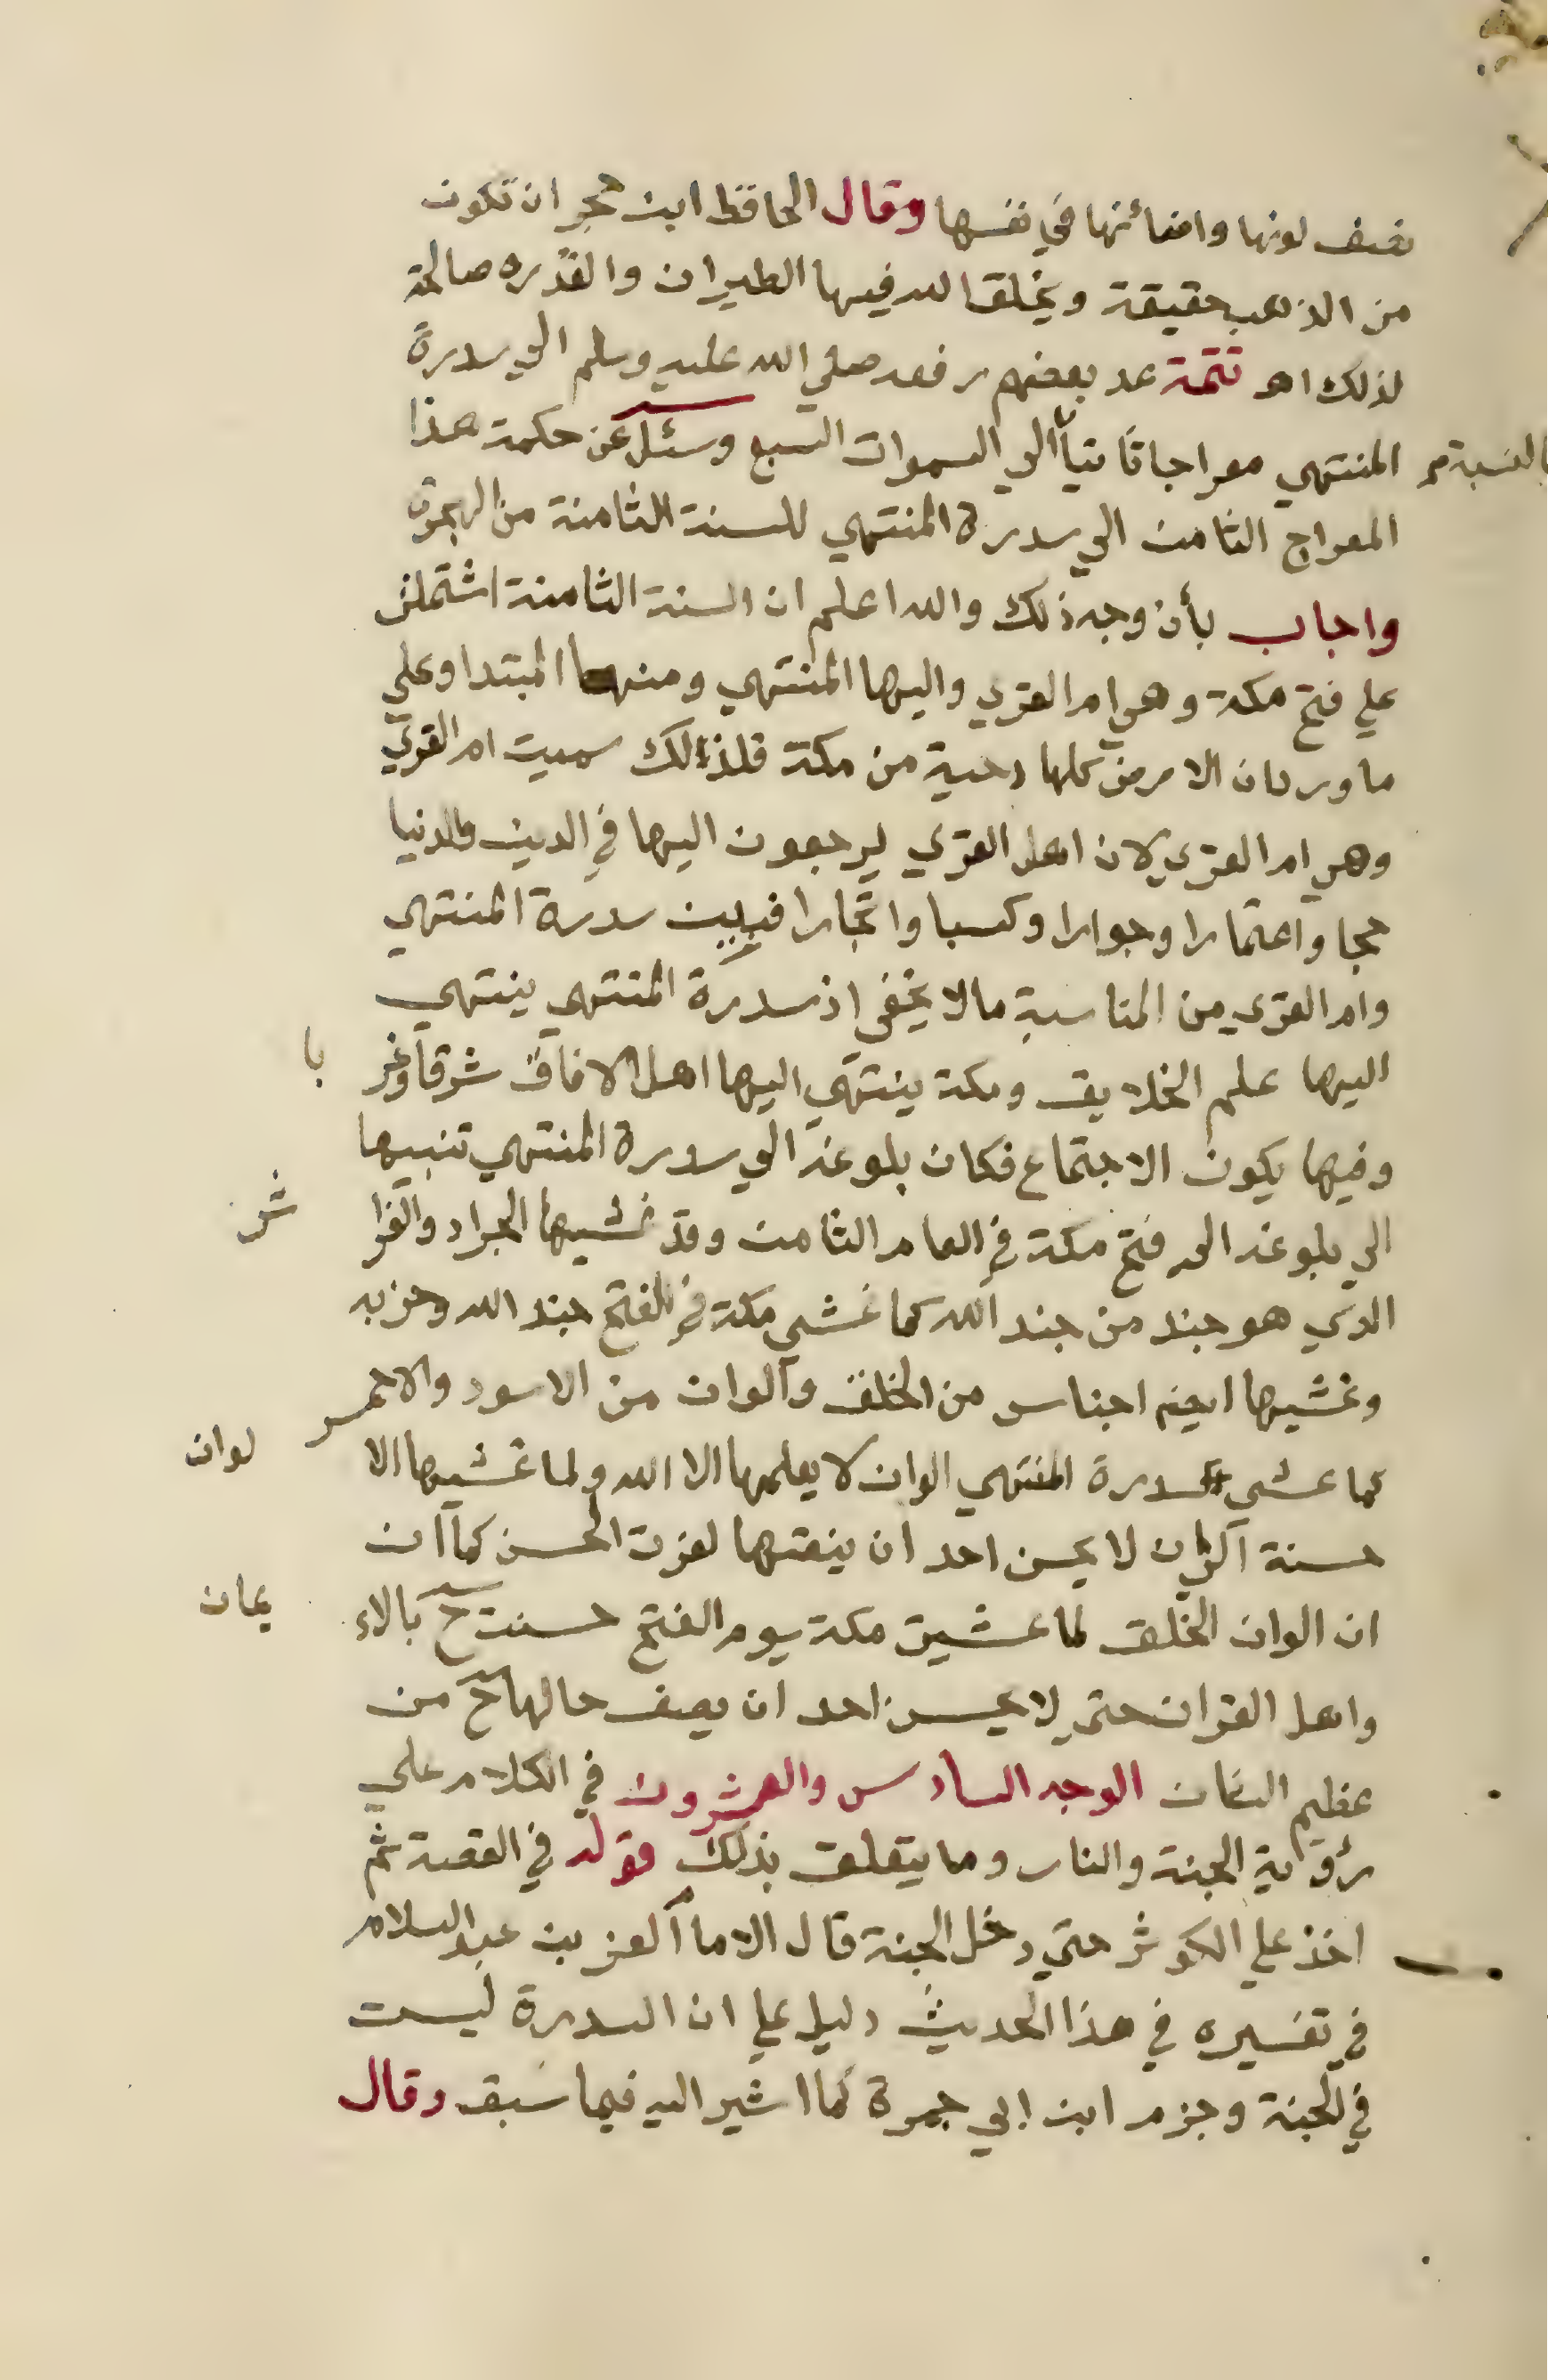 نصف لونها واضائتها في نفسها وقال الحافظ ابن حجر ان تكون
من الذهب حقيقة ويخلق الله فيها الطيران والقدره صالحة
لذلك اهـ تتمة عد بعضهم رفعه صلي الله عليه وسلم الي سدرة
المنتهي معراجا ثانيا الي السموات السبع وسئل عن حكمة هذا
بالنسبة
المعراج الثامن الي سدرة المنتهي للسنة الثامنة من الهجرة
واجاب بأن وجه ذلك والله اعلم ان السنة الثامنة اشتملت
علي فتح مكة وهي ام القري واليها المنتهي ومنها المبتدا وعلي
ما ورد ان الارض كلها دحية من مكة فلذلك سميت ام القري
وهي ام القري لان اهل القري يرجعون اليها في الدين والدنيا
حجا واعتمارا وجوارا وكسبا واتجارا فبين سدرة المنتهي
وام القري من المناسبة مالا يخفي اذ سدرة المنتهي ينتهي
اليها علم الخلايق ومكة ينتهي اليها اهل الافاق شرقا وغر با
وفيها يكون الاجتماع فكان بلوغه الي سدرة المنتهي تنبيها
الي بلوغه الي فتح مكة في العام الثامن وقد غشيها الجراد والفرا ش
الذي هو جند من جند الله كما غشي مكة في الفتح جند الله وحزبه
وغشيها ايضا اجناس من الخلق والوان من الاسود والاحمر
كما غشي سدرة المنتهي الوان لا يعلمها الا الله ولما غشيها الا لوان
حسنة الوان لا يحسن احد ان ينعتها لعزت الحسن كما ان
ان الوان الخلق لما غشيت مكة يوم الفتح حسنت ح بالاء يمان
واهل القران حتي لا يحسن احد ان يصف حالها ح من
عظيم الشان الوجه السادس والعشرون في الكلام علي
رؤية الجنة والنار وما يتعلق بذلك قوله في القصة ثم
اخذ علي الكوثر حتي دخل الجنة قال الاما العز بن عبد السلام
في تفسيره في هذا الحديث دليل علي ان السدرة ليست
في الجنة وجزم ابن ابي جمرة كما اشير اليه فيما سبق وقال